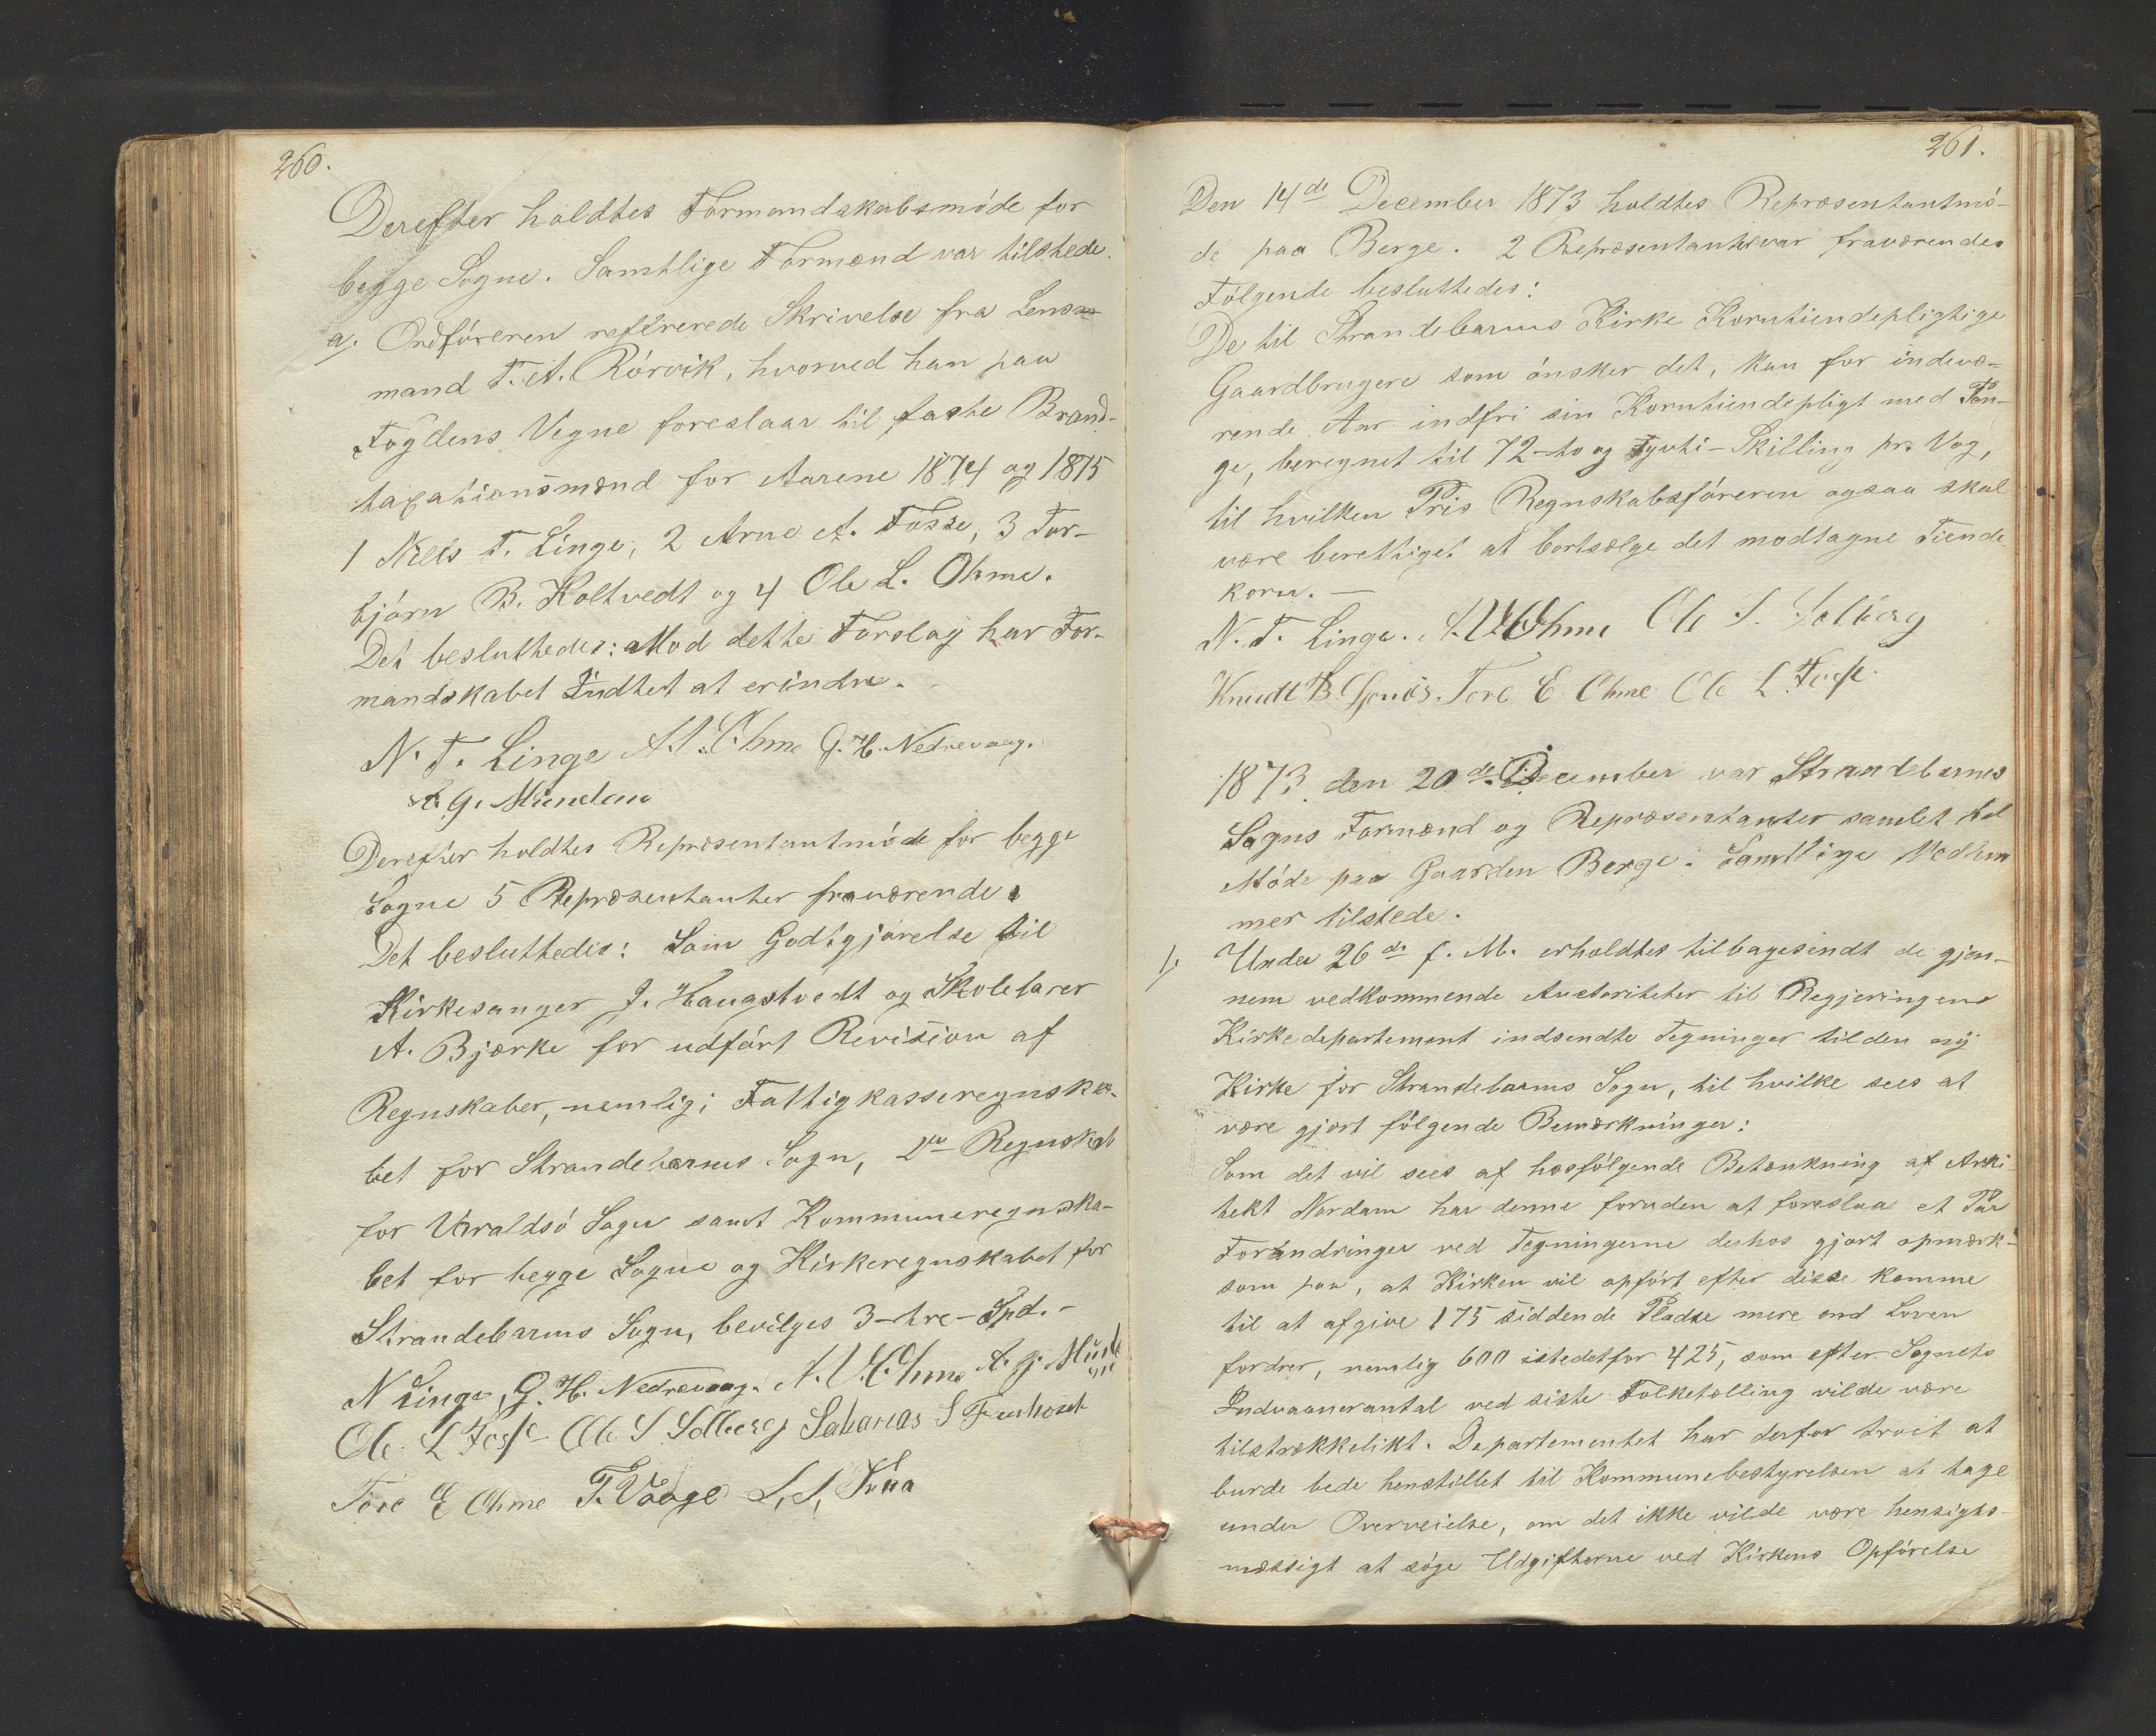 260.
Derefter holdtes Formandskabsmøde for
begge Sogne. Samtlige Formænd var tilstede.
a/. Ordføreren refererede Skrivelse fra Lens-
mand T. A. Rørvik, hvorved han paa
Fogdens Vegne foreslaar til faste Brand-
taxationsmænd for Aarene 1874 og 1875
1 Nels T. Linge, 2 Arne A. Fosse, 3 Tor-
bjørn B. Holtvedt og 4 Ole L. Ohme.
Det besluttedes: Mod dette Forslag har For-
mandskabet Indtet at erindre.
N. T. Linge A. V. Ohme G. H. Nedrevaag.
A. G. Mundau
Derefter holdtes Repræsentantmøde for begge
Sogne 5 Repræsentanter fraværende.
Det besluttedes: Som Godtgjørelse til
Kirkesanger J. Haugstvedt og Skolelærer
A. Bjærke for udført Revision af
Regnskaber, nemlig: Fattigkasseregnska-
bet for Strandebarms Sogn, do Regnskab
for Varaldsø Sogn samt Kommuneregnska-
bet for begge Sogne og Kirkeregnskabet for
Strandebarms Sogn, bevilges 3-tre-Spd.-
N Linge, G. H. Nedrevaag. A. V. Ohme A. G. Mund
Ole L Fosse Ole S Solberg Sakarias S
Tore E Ohme T. Vaage L. S.
261.
Den 14de December 1873 holdtes Repræsentantmø-
de paa Berge. 2 Repræsentanter var fraværende.
Følgende besluttedes:
De til Strandebarms Kirke Korntiendepligtige
Gaardbrugere som ønsker det, kan for indevæ-
rende Aar indfri sin Korntiendepligt med Pen-
ge, beregnet til 72-to og sytti-Skilling pr. Vog,
til hvilken Pris Regnskabsføreren ogsaa skal
være berettiget at bortsælge det modtagne Tiende
korn. —
N. T. Linge. A. V. Ohme Ole S. Solberg
Knudt B. Tore E Ohme Ole L. Fosse.
1873 den 20de December var Strandebarms
Sogns Formænd og Repræsentanter samlet til
Møde paa Gaarden Berge. Samtlige Medlem
mer tilstede.
1/. Under 26de f. M. erholdtes tilbagesendt de gjen-
nem vedkommende Auctoriteter til Regjeringens
Kirkedepartement indsendte Tegninger til den ny
Kirke for Strandebarms Sogn, til hvilke sees at
være gjort følgende Bemærkninger:
Som det vil sees af hosfølgende Betænkning af Arki
tekt Nordam har denne foruden at foreslaa et Par
Forandringer ved Tegningerne derhos gjort opmærk-
som paa, at Kirken vil opført efter disse komme
til at afgive 175 siddende Pladse mere end Loven
fordrer, nemlig 600 istedetfor 425, som efter Sognets
Indvaanerantal ved siste Folketælling vilde være
tilstrækkelikt. Departementet har derfor troet at
burde bede henstillet til Kommunebestyrelsen at tage
under Overveielse, om det ikke vilde være hensigts-
mæssigt at søge Udgifterne ved Kirkens Opførelse